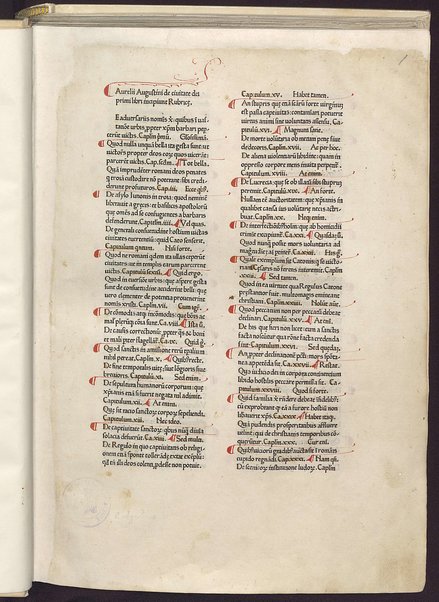 Aurelii Augustini de ciuitate dei
primi libri incipiunt Rubrice.
E aduersariis nominis xp̄i: quibus ī uas-
tatiōe urbis, ppter xp̄m barbari pep-
ercere uictis. Caplm p̄mū. Glosissimā.
Quod nulla unquā bella ita gesta sunt: ut
uictores propter deos eoƺ quos uicerāt:
parcerēt uictis. Cap. secdm. Tot bella.
Quā imprudēter romani deos penates
troie custodire nō potuerāt sibi credi-
derāt profuturos. Cap. iii. Ecce q̄lis.
De asylo Iunonis in troia: quod neminē
liberauit a grecis: et basilicis apostoloƺ
que omēs ad se confugientes a barbaris
defenderunt. Caplm .iiii. Vel quas.
De generali consuetudine hostium uictas
ciuitates euertentiū: quid Cato senserit.
Capitulum quintum. His forte.
Quod ne romani qdem ita ullas ceperīt
ciuitates: ut in templis earum parcerent
uictis. Capitulū sextū. Quid ergo.
Quod in euersiōe urbis: que aspere gesta
sunt de consuetudine acciderint belli: que
uero clementer de potentia prouenerint
nominis xp̄isti. Caplm. vii.
De cōmodis atq; incōmodis: que bonis ac
malis pleruq; cōia sunt. Ca. viii. Ista ū.
De causis correctionis, ppter q̄s et boni
et mali pariter flagellāt. C. ix. Quid ḡ.
Quod sanctis in amissione rerū tēpaliū
nihil pereat. Caplm. x. Quib recte.
De fine temporalis uite: siue lōgioris siue
breuioris. Capitulū. xi. Sed enim.
De sepultura humanorū corporum: que
xp̄ianis etiā si fuerit negata nil adimit.
Capitulum. xii. At enim.
Que sit ratio sanctoƺ corpora sepeliendi.
Capitulum. xiii. Nec ideo.
De captiuitate sanctoƺ: qbus nūq; diuīa
solacia defuerūt. Ca. xiiii. Sed multi.
De Regulo in quo captiuitatis ob religi-
onem etiā sponte tollerāde extat exēplū:
qd tn illi deos colenti, pdesse non potuit.
Capitulum. xv. Habēt tamen.
An stupris que etiā sctarū forte virginū
est passa captiuitas: contaminari potuerit
uirtus animi sine uoluntatis assensu. Ca-
pitulū. xvi. Magnum sane.
De morte uoluntaria ob metum pene siue
dedecoris. Caplm. xvii. At per hoc.
De aliena uiolentia et libidine: quam in
oppresso corpore mens inuita perpetit.
Capitulum. xviii. At enim.
De Lucretia: que se ob illatū sibi stuprum
peremit. Capitulū. xix. An forte.
Nullam eē auctoritatem: que xp̄ianis in
qualibet causa ius uoluntarie necis
tribuat. Caplm. xx. Neq; enim.
De interfectiōib hoīm: que ab homicidii
crimine excipiunt. Ca. xxi. Quasdā ū.
Quod nunq; possit mors uoluntaria ad
magnitudinē aī ptinere. Ca. xxii.
Quale exemplum sit Catonis: qui se uicto-
riam Cesaris nō ferens interemit. Caplm
.xxiii. Sed tamen.
Quod in ea uirtute qua Regulus Catone
prestantior fuit: multomagis emineant
christiani. Caplm. xxiiii. Nolūt aūt.
Quod peccatum non per peccatū debeat
declinari. Capitulū. xxv. At eni.
De his que fieri non licet: cum a sanctis
facta noscunt: qua rōne facta credenda
sint. Capitulum. xxvi. Sed quedā.
An ppter declinationē pcti: mors spōta-
nea appetēda sit. Ca. xxvii. Restat.
Quo iudicio dei in corpora continentium
libido hostilis peccare permissa sit. Ca-
pitulum. xxviii. Quod si forte.
Quid familia xp̄i rndere debeat īfidelib:
cū exprobrant qd eā a furore hostiū non
liberauerit xp̄s. Ca. xxix. Habet itaq;.
Qua pudendis prosperitatibus affluere
uelint: qui de christianis temporibus cō-
querunt. Caplm. xxx. Cur eni.
Quib uicioƺ gradib aucta sit ī romāis
cupido regnādi. Cap. xxxi. Nam q̄n.
De scenicoƺ institutione ludoƺ. Caplm